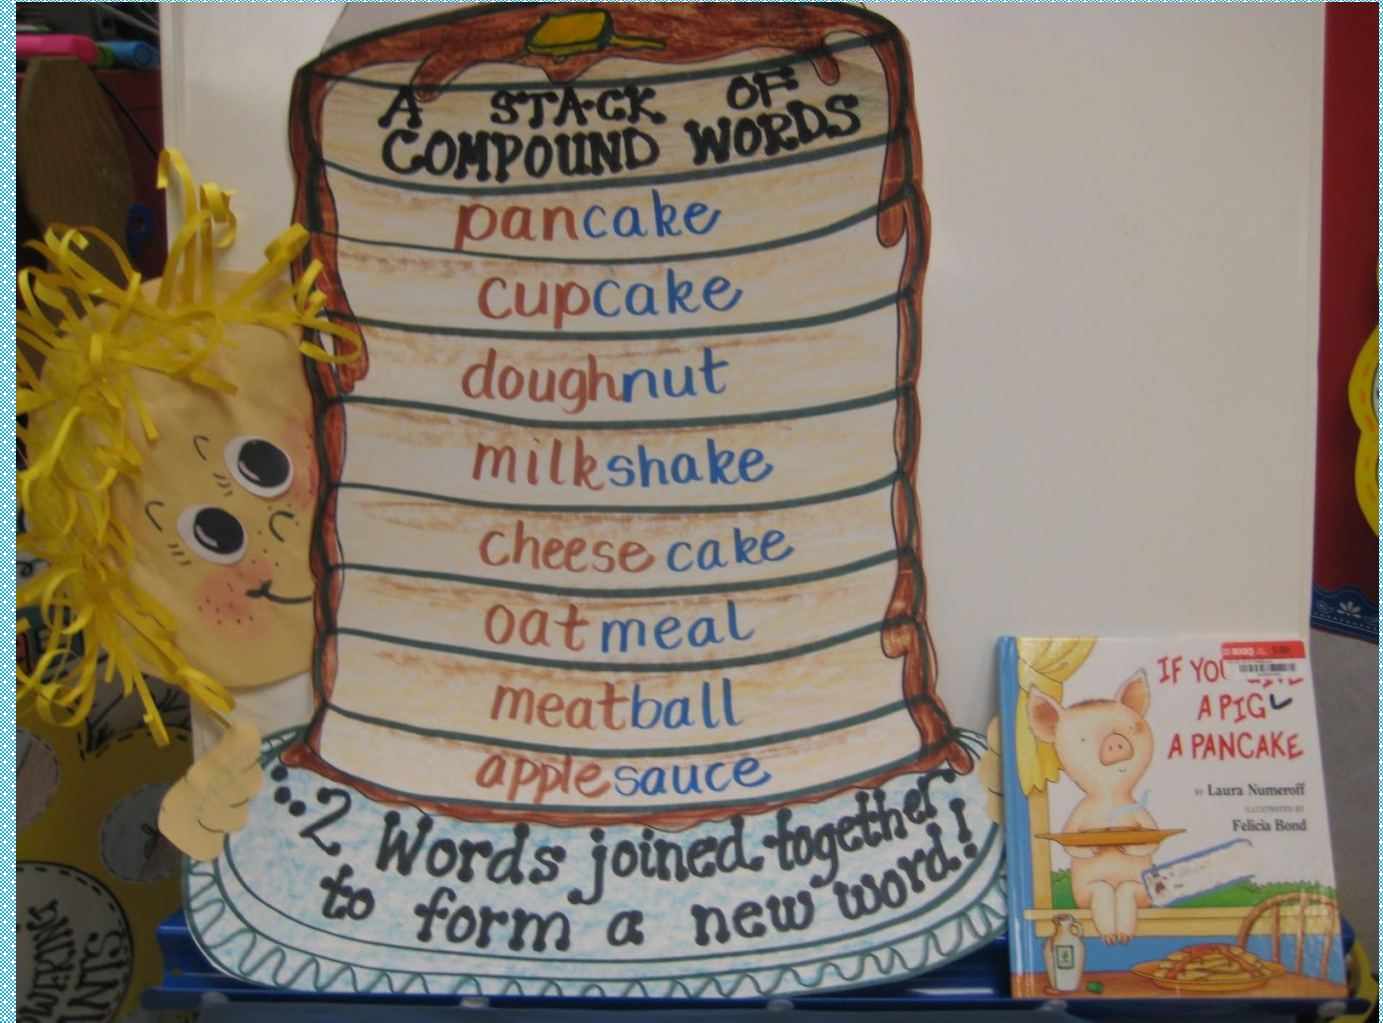 A STACK OF
COMPOUND WORDS
pancake
cupcake
doughnut
milkshake
cheese cake
oatmeal
meatball
applesauce
2 Words joined together
to form a new word!
IF YOU
A PIG
A PANCAKE
BY Laura Numeroff
ILLUSTRATED BY
Felicia Bond